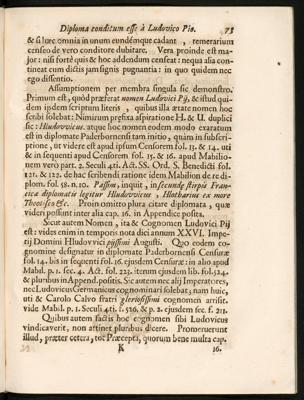 Diploma conditum esse à Ludovico Pio. 73
& si hæc omnia in unum eundémque cadant, temerarium
censeo de vero conditore dubitare. Vera proinde est ma-
jor: nisi fortè quis & hoc addendum censeat: nequa alia con-
tineat cum dictis jam signis pugnantia: in quo quidem nec
ego dissentio.
Assumptionem per membra singula sic demonstro.
Primum est, quòd præferat nomen Ludovici Pij, & istud qui-
dem ijsdem scriptum literis, quibus illa ætate nomen hoc
scribi solebat: Nimirum prefixa aspiratione H. & U. duplici
sic: Hluduvvicus. atque hoc nomen eodem modo exaratum
est in diplomate Paderbornensi tam initio, quam in subscri-
ptione, ut videre est apud ipsum Censorem fol. 13. & 14. uti
& in sequenti apud Censorem fol. 15. & 16. apud Mabilio-
nem verò part. 2. Seculi 4ti. Act. SS. Ord. S. Benedicti fol.
121. & 122. de hac scribendi ratione idem Mabilion de re di-
plom. fol. 58. n. 10. Passim, inquit, in secundæ stirpis Fran-
cicæ diplomatis legitur Hludovvicus, Hlotharius ex more
Theotisco &c. Proin omitto plura citare diplomata, quæ
videri possunt inter alia cap. 16. in Appendice posita.
Sicut autem Nomen, ita & Cognomen Ludovici Pij
est: vides enim in temporis nota dici annum XXVI. Impe-
rij Domini Hludovvici pijssimi Augusti. Quo eodem co-
gnomine designatur in diplomate Paderbornensi Censuræ
fol. 14. bis in sequenti fol. 16. ejusdem Censuræ: in alio apud
Mabil. p. 1. sec. 4. Act. fol. 223. iterum ejusdem lib. fol. 524.
& pluribus in Append. positis. Sic autem nec alij Imperatores,
nec Ludovicus Germanicus cognominari solebat; nam huic,
uti & Carolo Calvo fratri gloriosissimi cognomen arrisit.
vide Mabil. p. 1. Seculi 4ti. f. 526. & p. 2. ejusdem sec. f. 211.
Quibus autem factis hoc cognomen sibi Ludovicus
vindicaverit, non attinet pluribus dicere. Promeruerunt
illud, præter cetera, tot Præcepta, quorum bene multa cap.
K 16.